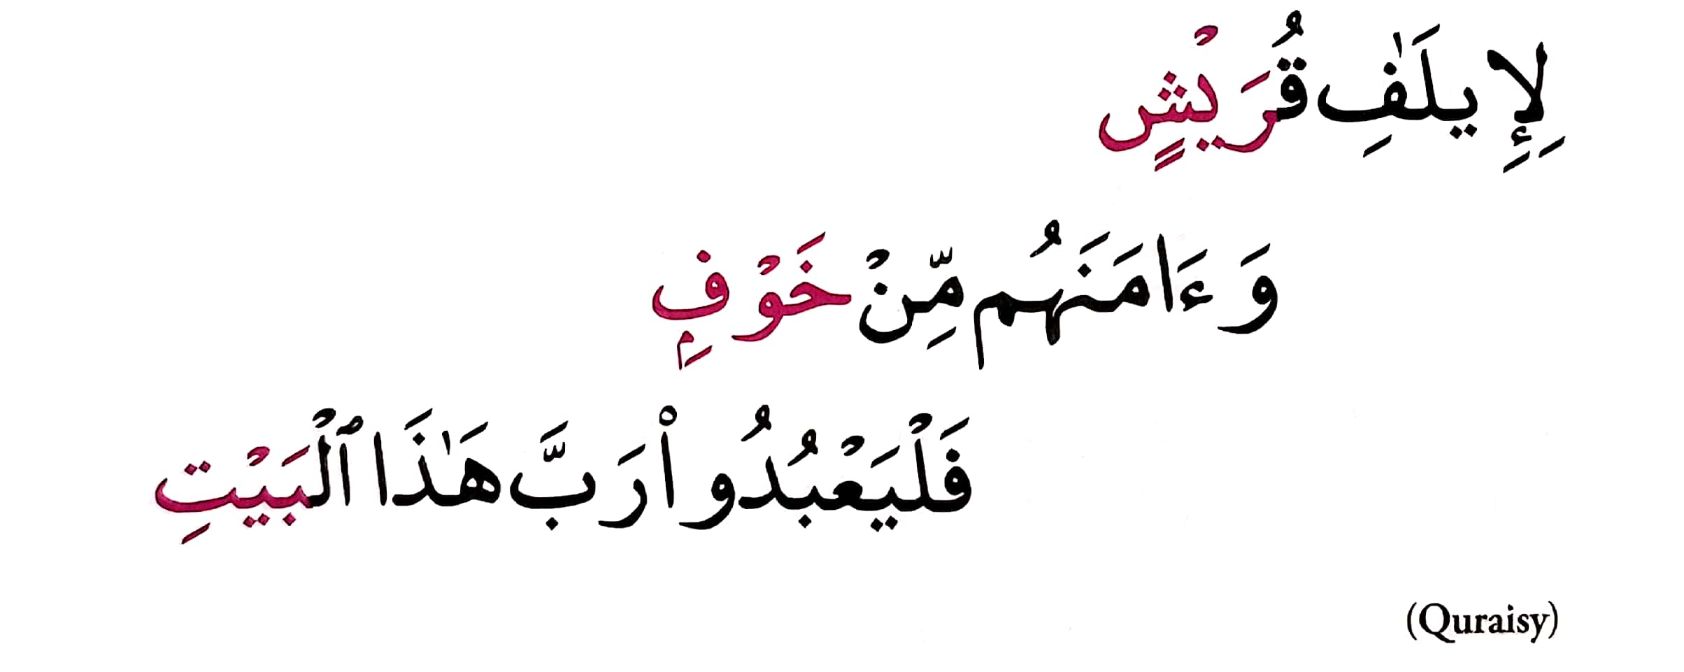 لِإِيلَٰفِ قُرَيْشٍ
وَءَامَنَهُم مِّنْ خَوْفٍۭ
فَلْيَعْبُدُوا۟ رَبَّ هَٰذَا ٱلْبَيْتِ
(Quraisy)